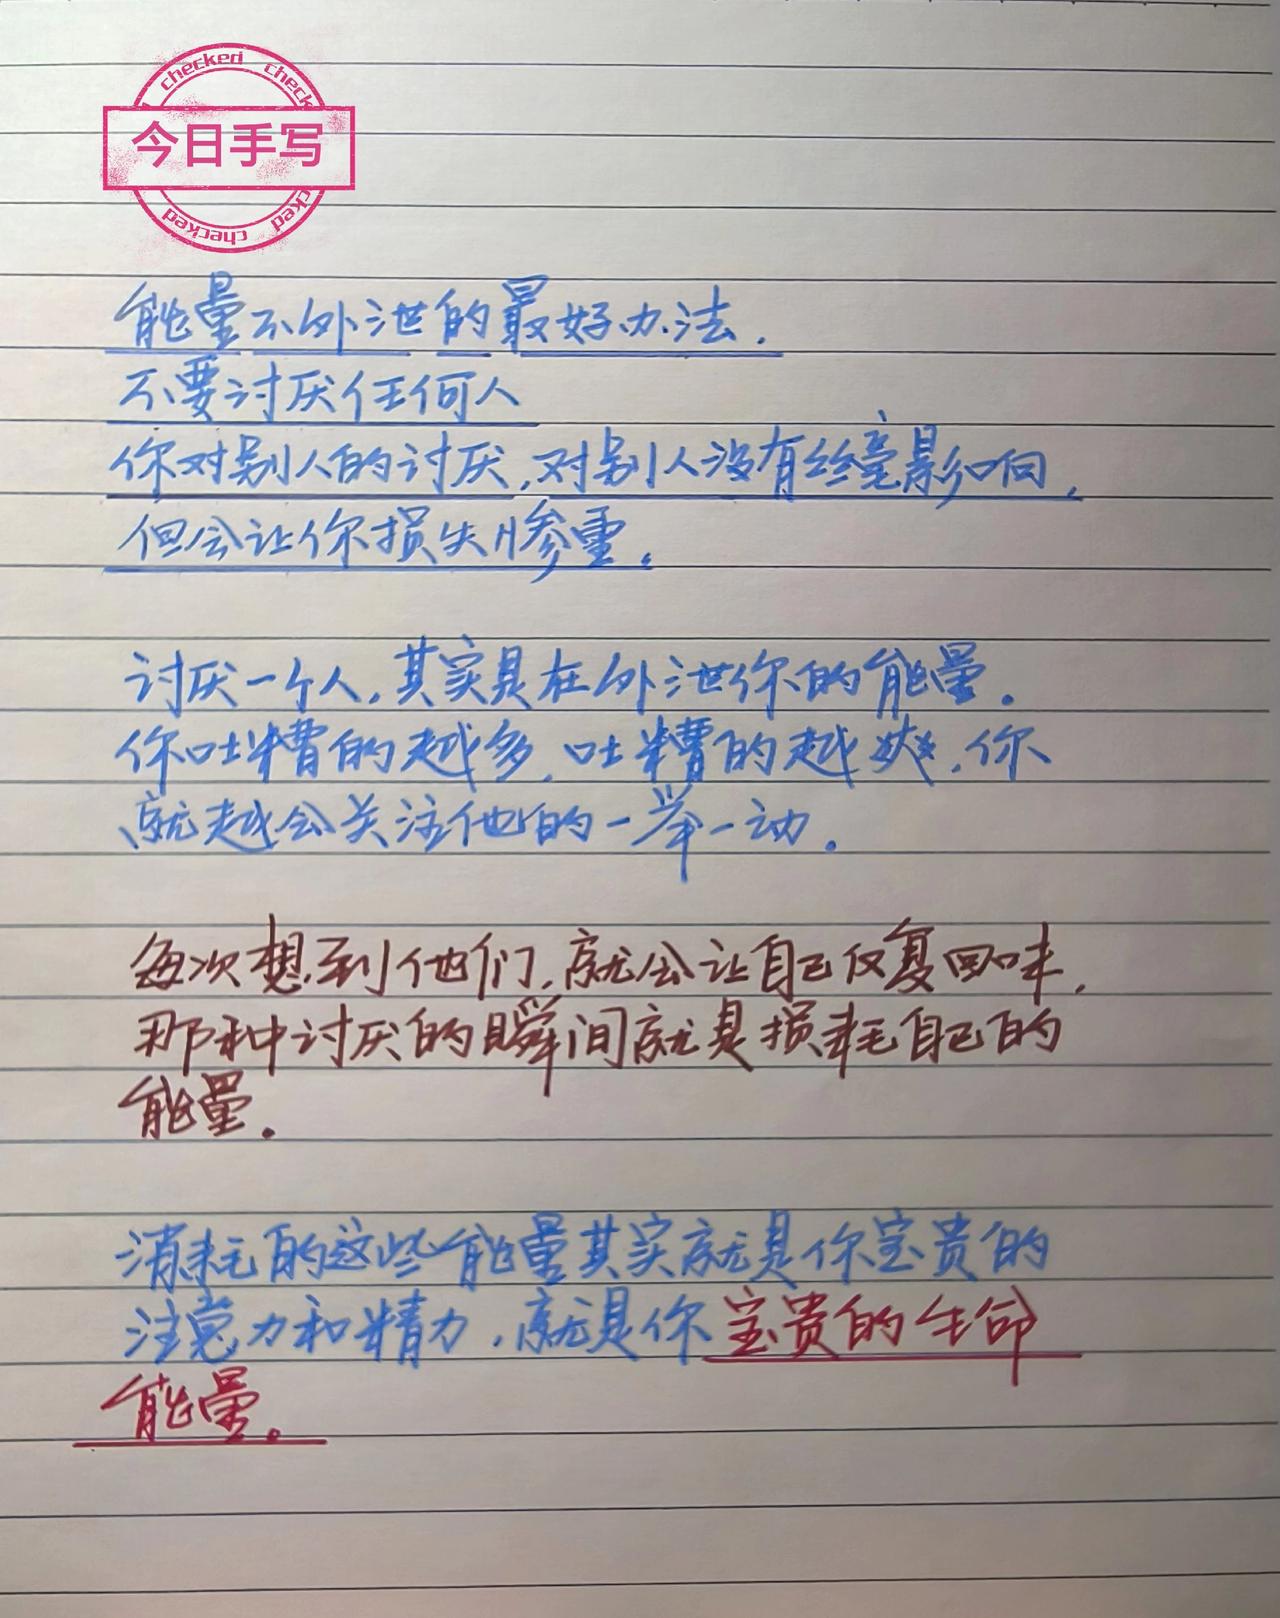 checked check
今日手写
cked checked
能量不外泄的最好办法.
不要讨厌任何人
你对别人的讨厌,对别人没有丝毫影响,
但会让你损失惨重。
讨厌一个人,其实是在外泄你的能量。
你吐糟的越多,吐糟的越爽,你
就越会关注他的一举一动。
每次想到他们,就会让自己反复回味,
那种讨厌的瞬间就是损耗自己的
能量。
消耗的这些能量其实就是你宝贵的
注意力和精力,就是你宝贵的生命
能量。